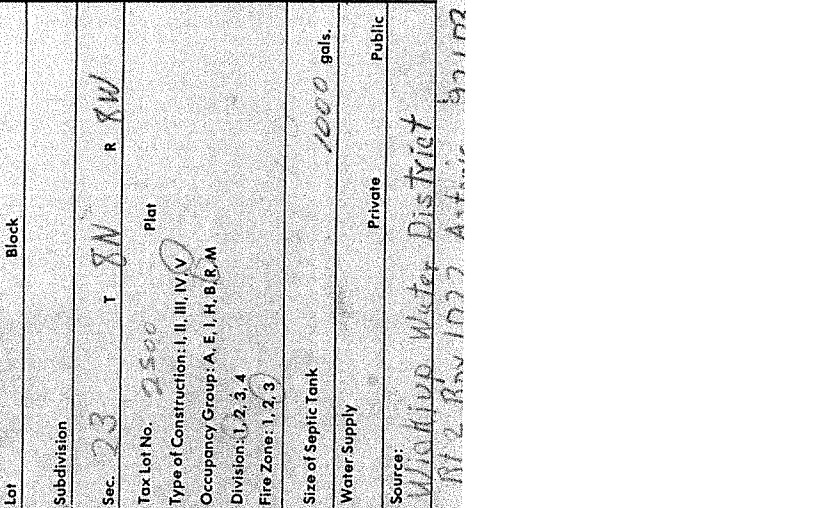 Lot Block
Subdivision
Sec. 23 T 8N R 8W
Tax Lot No. 2500 Plat
Type of Construction: I, II, III, IV, V
Occupancy Group: A, E, I, H, B, R, M
Division: 1, 2, 3, 4
Fire Zone: 1, 2, 3
Size of Septic Tank 1000 gals.
Water Supply Private Public
Source:
Water District
Rt 2 Box 1022